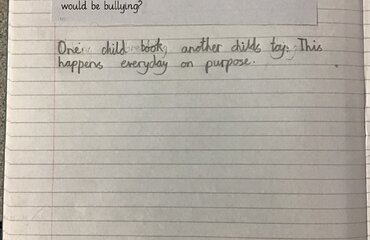 would be bullying?
One child took another childs toy. This
happens everyday on purpose.